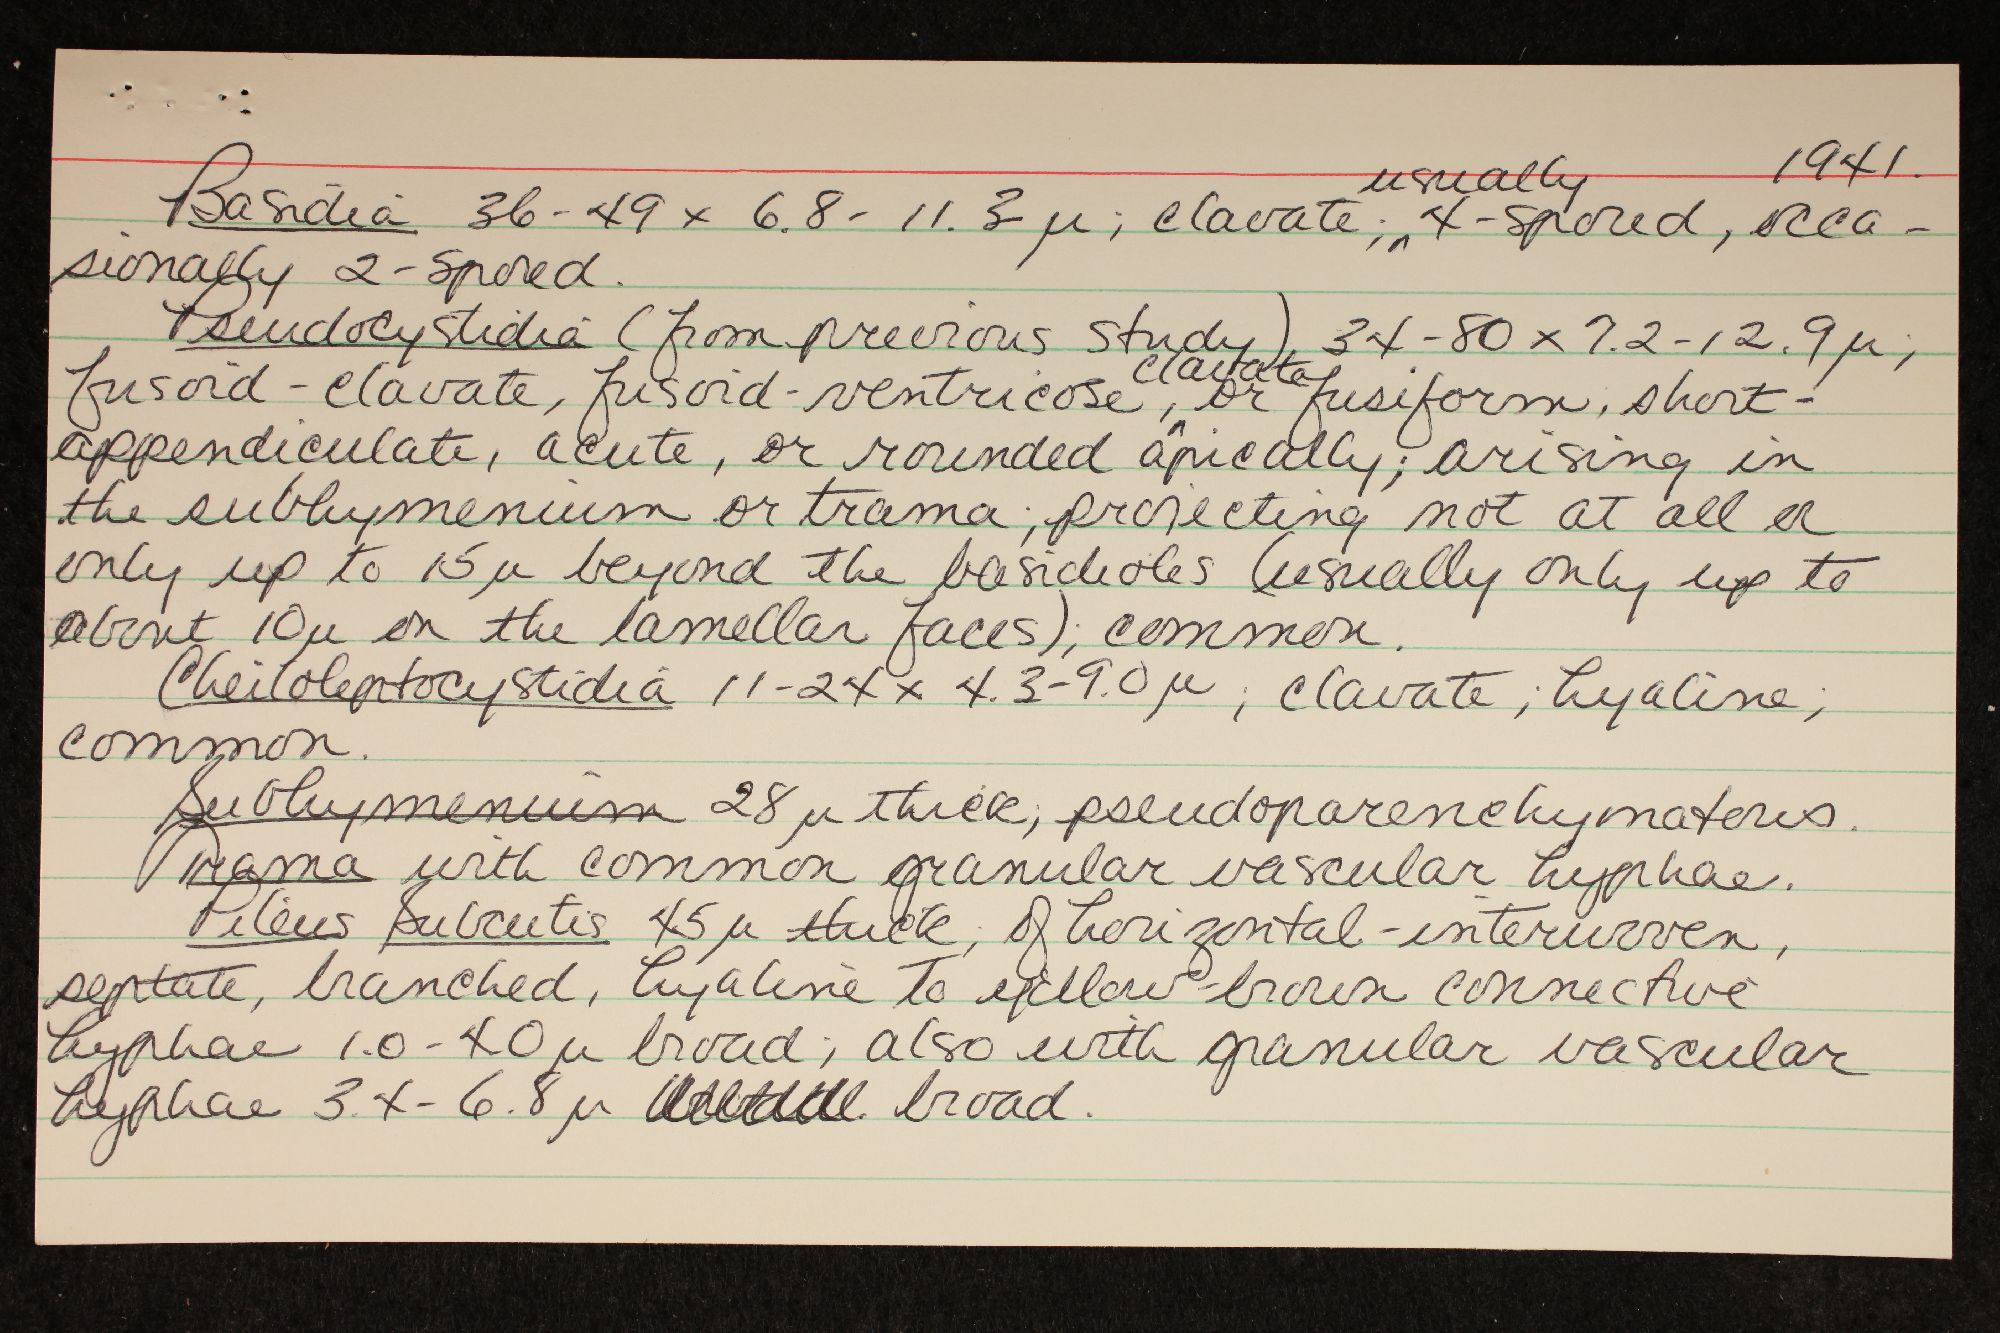 1941.
Basidia 36-49 x 6.8-11.3 µ; clavate; usually 4-spored, occa-
sionally 2-spored.
Pseudocystidia (from previous study) 34-80 x 7.2-12.9 µ;
fusoid-clavate, fusoid-ventricose, clavate or fusiform, short-
appendiculate, acute, or rounded apically; arising in
the subhymenium or trama; projecting not at all or
only up to 15 µ beyond the basidioles (usually only up to
about 10 µ on the lamellar faces); common.
Cheiloleptocystidia 11-24 x 4.3-9.0 µ; clavate; hyaline;
common.
Subhymenium 28 µ thick; pseudoparenchymatous.
Trama with common granular vascular hyphae.
Pileus Subcutis 45 µ thick; of horizontal-interwoven,
septate, branched, hyaline to yellow-brown connective
hyphae 1.0-4.0 µ broad; also with granular vascular
hyphae 3.4-6.8 µ broad.